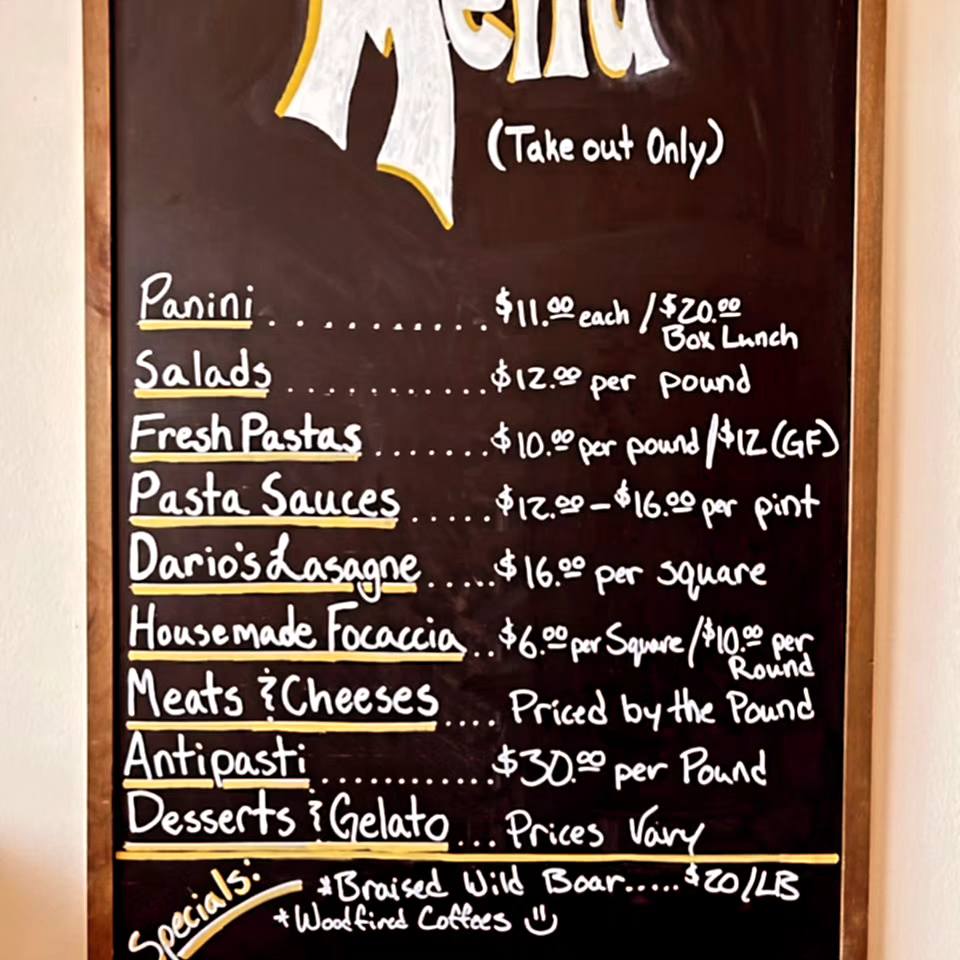 Menu
(Take out Only)
Panini . . . . . . . . . . $11.00 each / $20.00
Box Lunch
Salads . . . . . . . . . . . . $12.00 per pound
Fresh Pastas . . . . . . . $10.00 per pound / $12 (GF)
Pasta Sauces ..... $12.00 – $16.00 per pint
Dario's Lasagne ..... $16.00 per square
Housemade Focaccia .. $6.00 per Square / $10.00 per
Round
Meats & Cheeses .... Priced by the Pound
Antipasti ............ $30.00 per Pound
Desserts & Gelato ... Prices Vary
Specials: *Braised Wild Boar..... $20/LB
*Woodfired Coffees